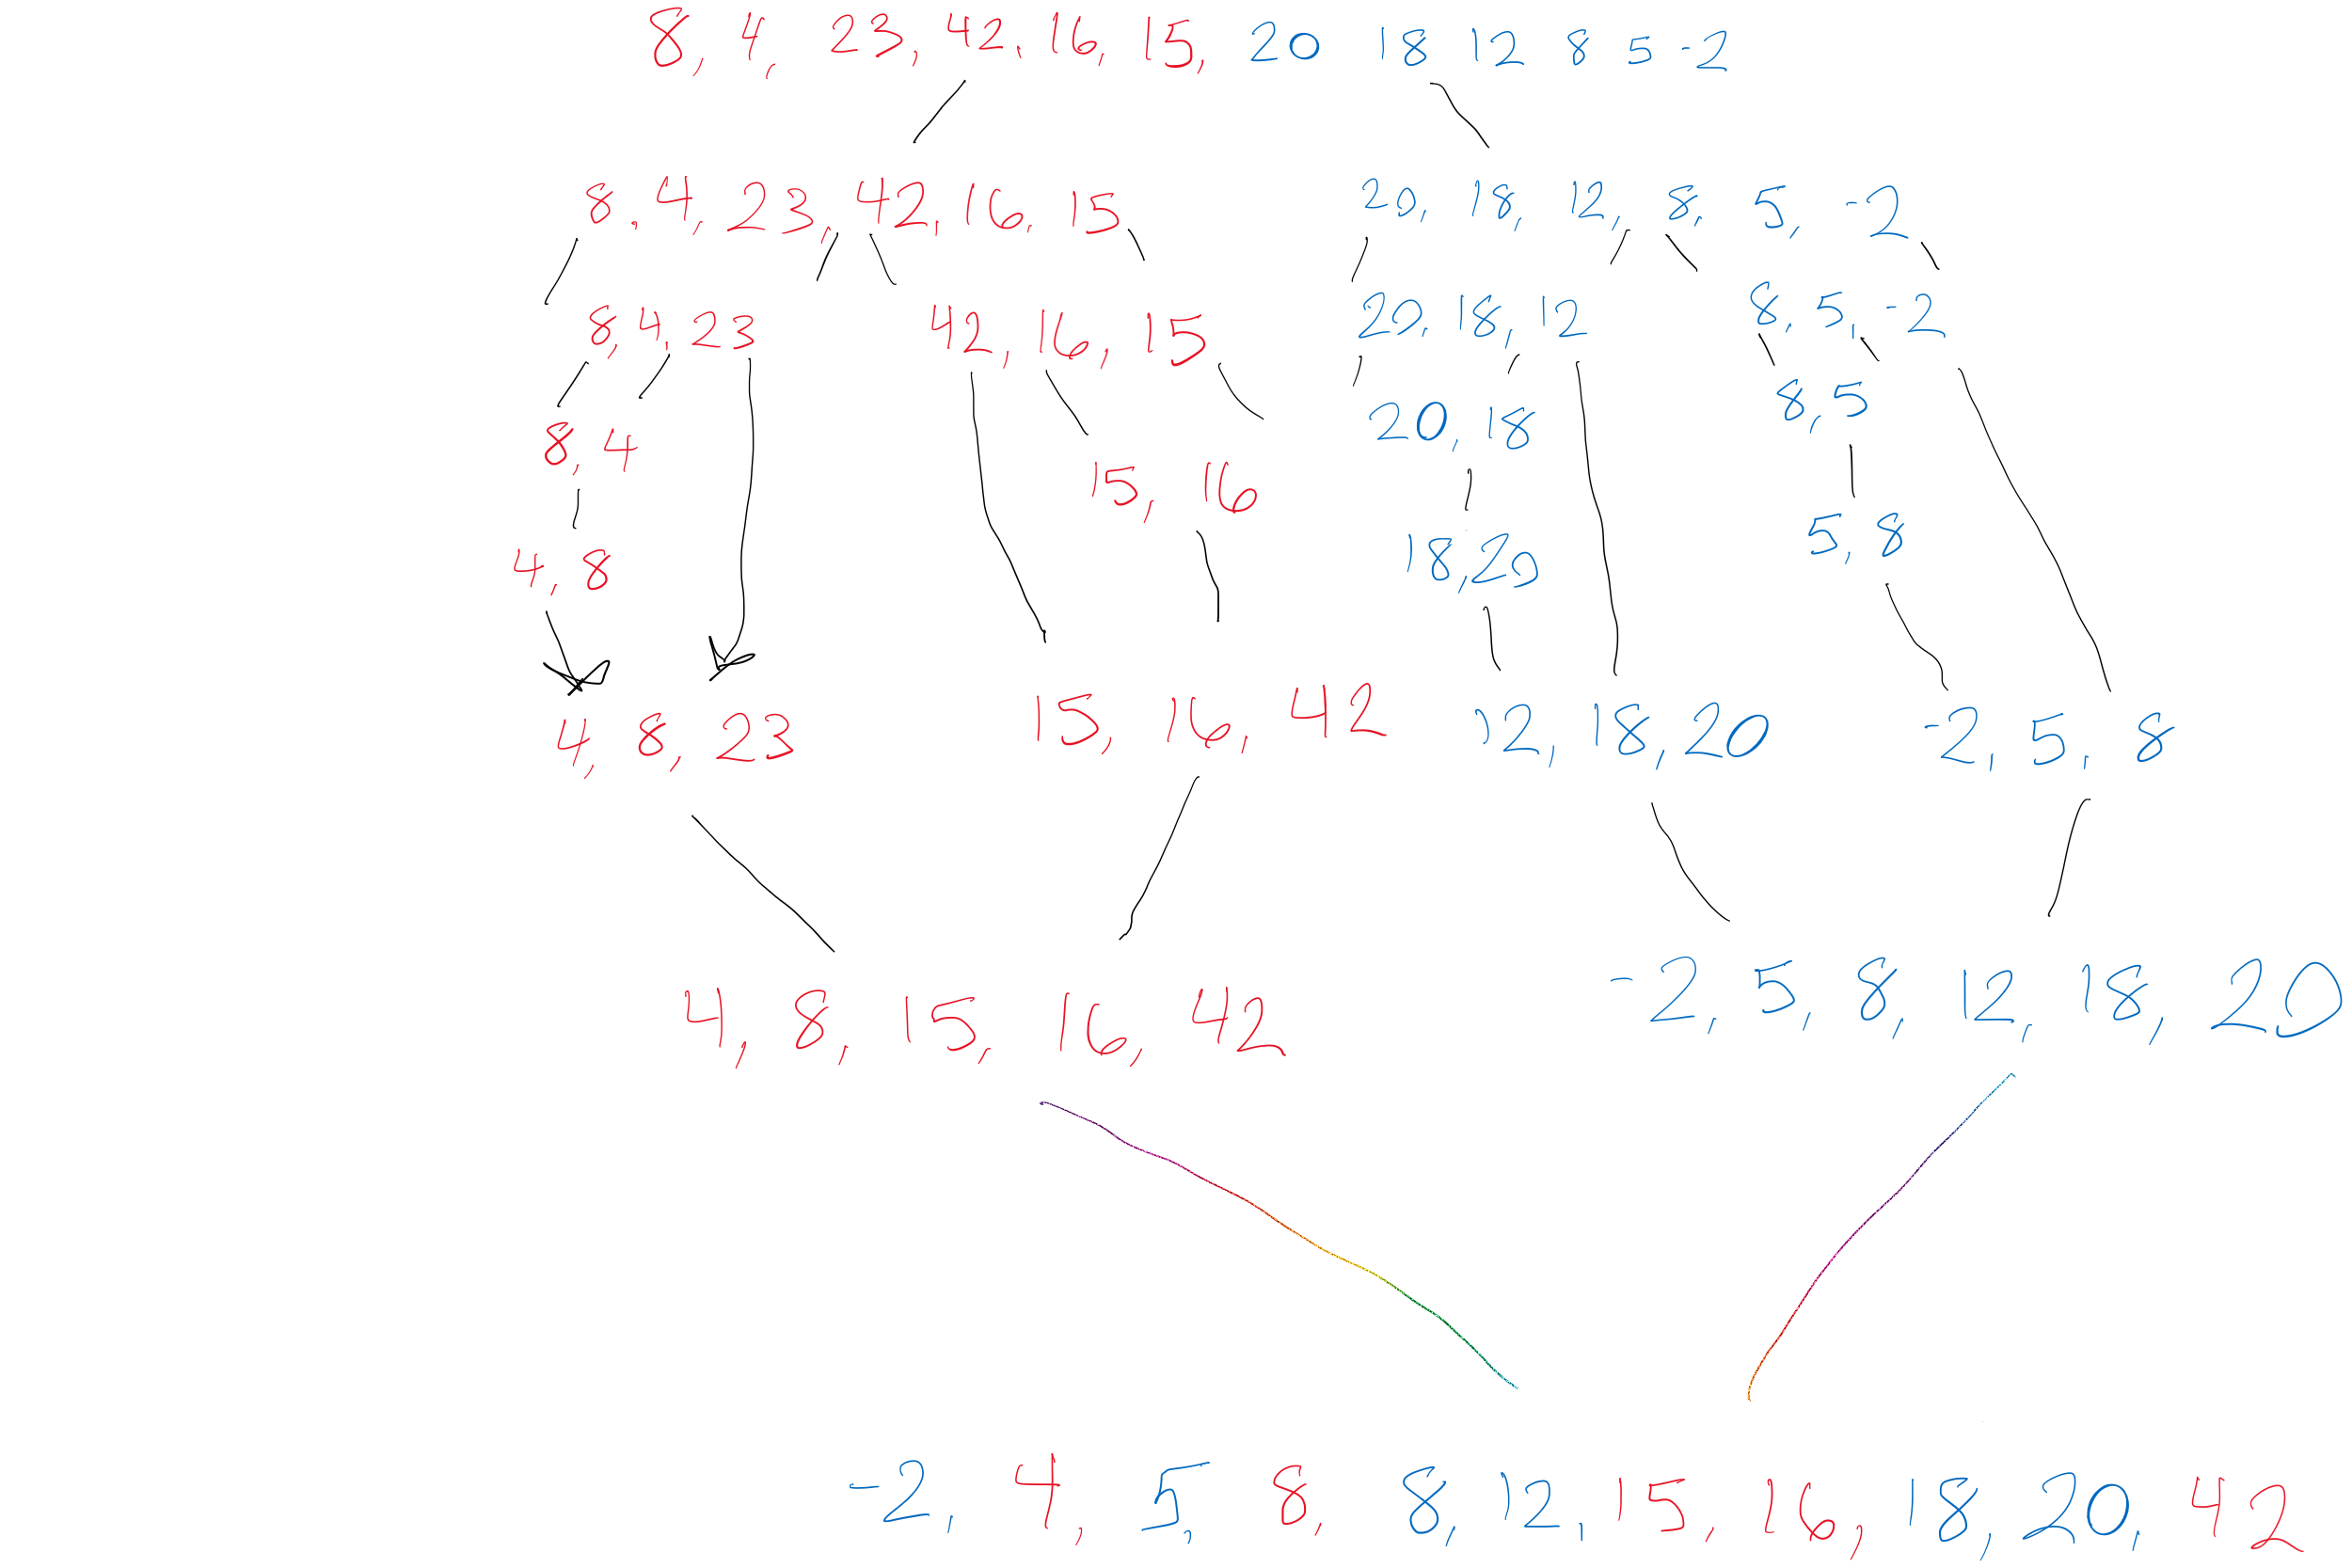 8, 4, 23, 42, 16, 15, 20 18 12 8 5 -2
8, 4, 23, 42, 16, 15 20, 18, 12, 8, 5, -2
8, 4, 23 42, 16, 15 20, 18, 12 8, 5, -2
8, 4 15, 16 20, 18 8, 5
4, 8 18, 20 5, 8
4, 8, 23 15, 16, 42 12, 18, 20 -2, 5, 8
4, 8, 15, 16, 42 -2, 5, 8, 12, 18, 20
-2, 4, 5, 8, 8, 12, 15, 16, 18, 20, 42